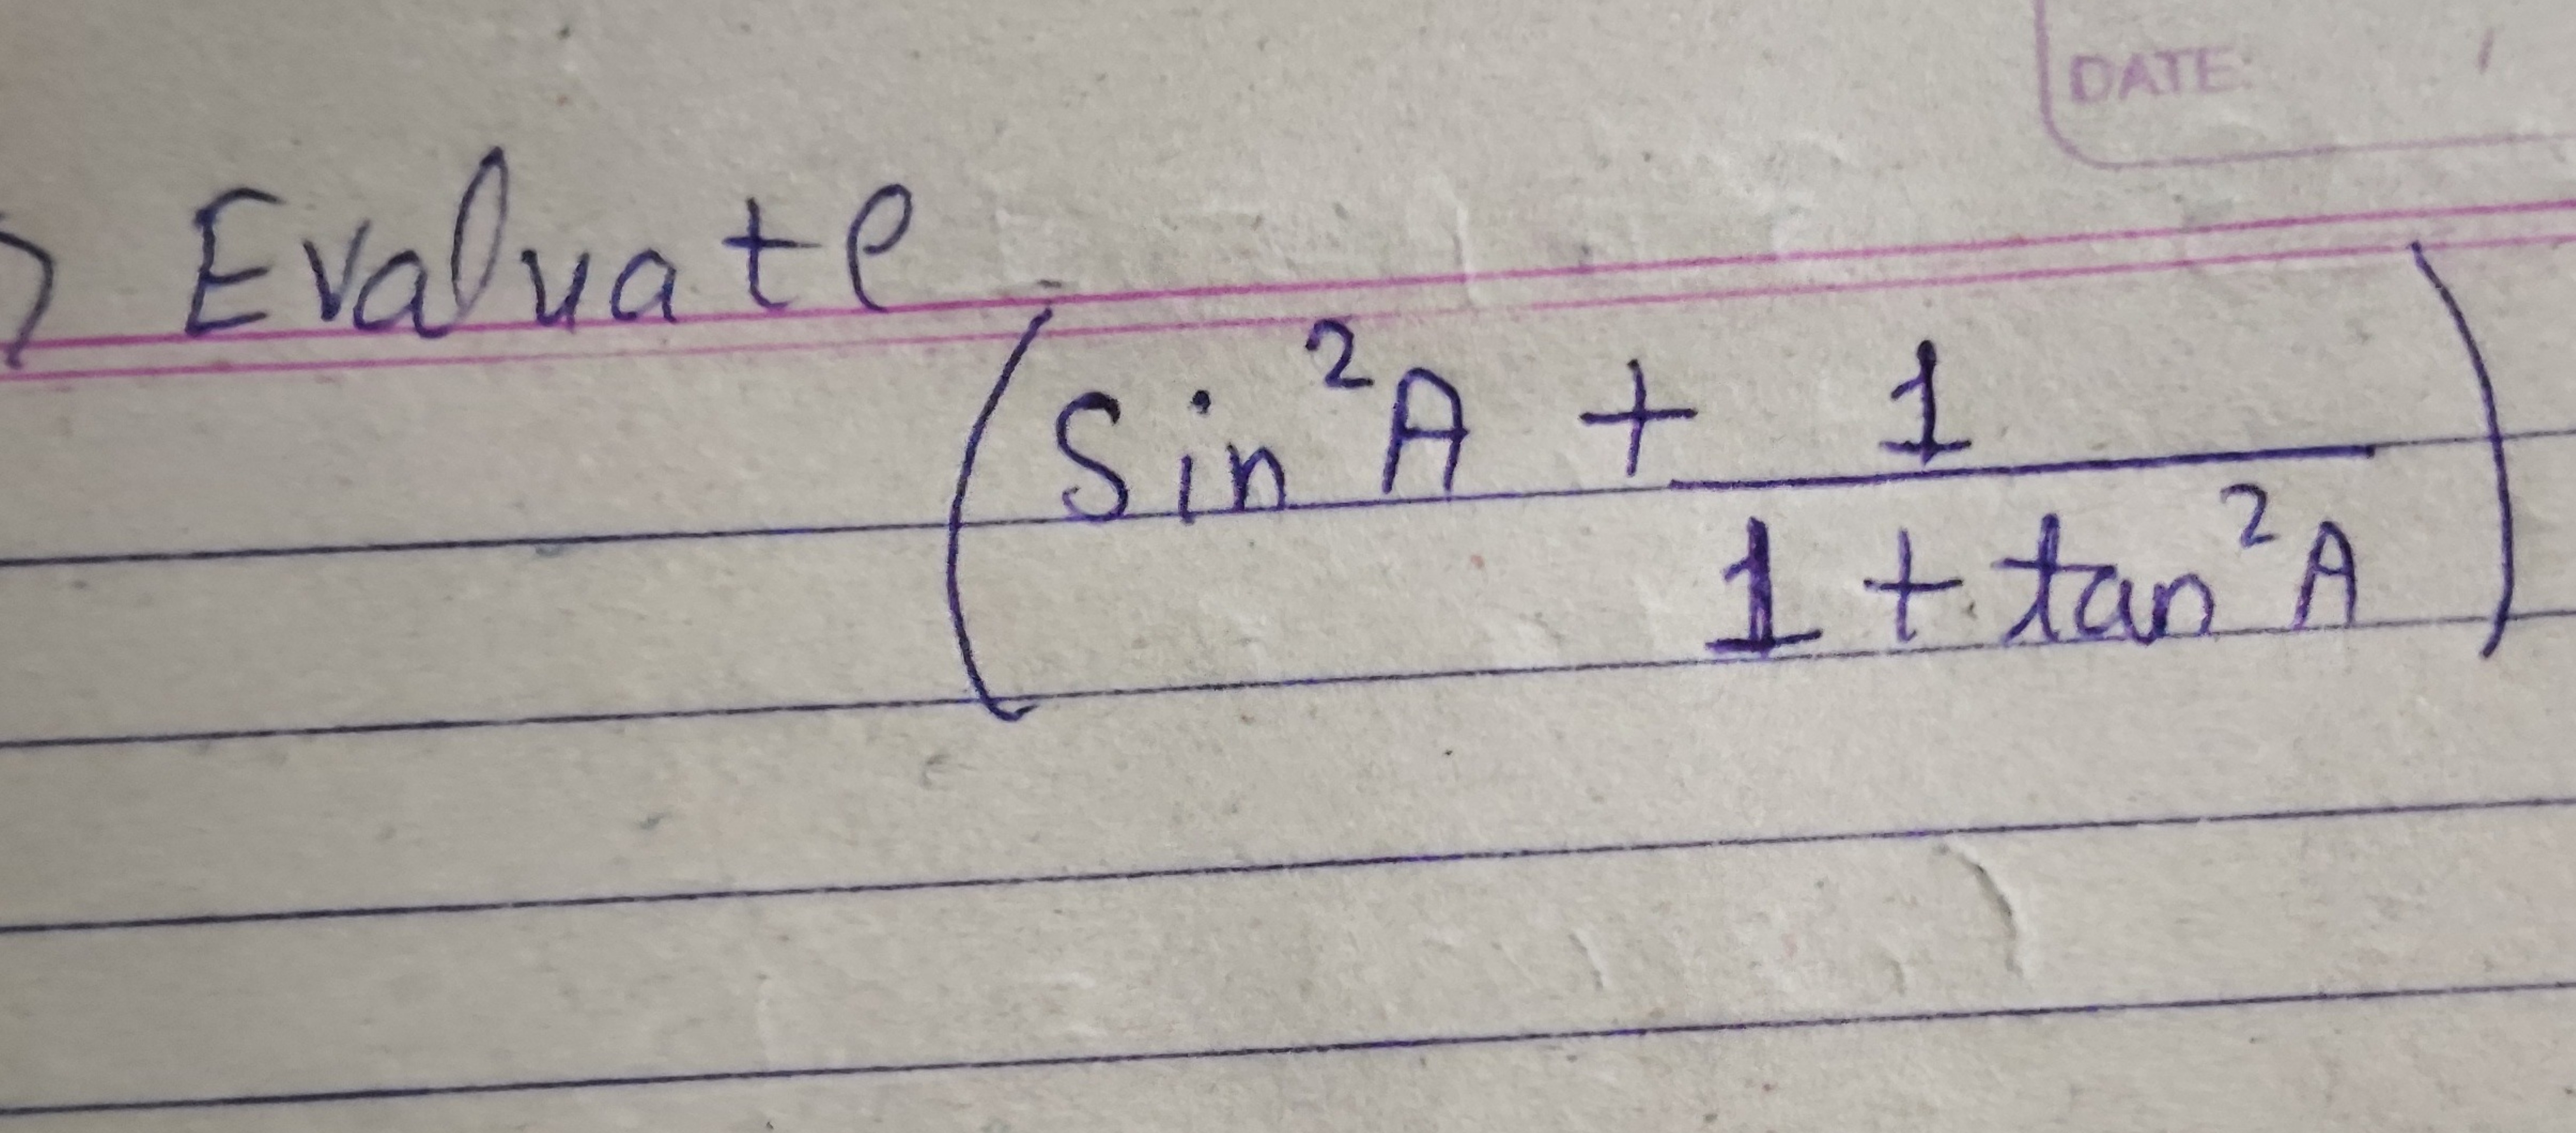 DATE:
) Evaluate
(Sin²A + 1/(1 + tan²A))